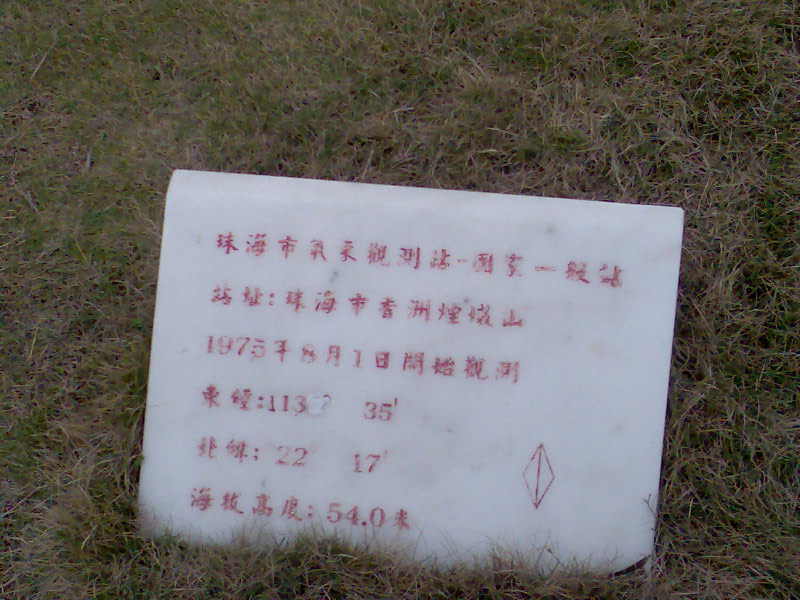 珠海市氣象觀測站-國家一般站
站址:珠海市香洲煙墩山
1975年8月1日開始觀測
東經:113° 35'
北緯: 22° 17'
海拔高度: 54.0米